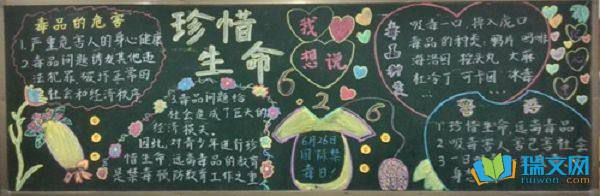 毒品的危害
1.严重危害人的身心健康
2.毒品问题诱发其他违
法犯罪,破坏正常的
社会和经济秩序
珍惜
生命
3.毒品问题给
社会造成了巨大的
经济损失。
因此,对青少年进行珍
惜生命、远离毒品的教育
是禁毒预防教育工作之重
我
想
说
6.26
6月26日
国际禁
毒日
毒品种类
吸毒一口,掉入虎口
毒品的种类:鸦片 吗啡
海洛因 摇头丸 大麻
杜冷丁 可卡因 冰毒
1.珍惜生命,远离毒品
2.吸毒害人害己害社会
3.一日
瑞文网
ruiwen.com